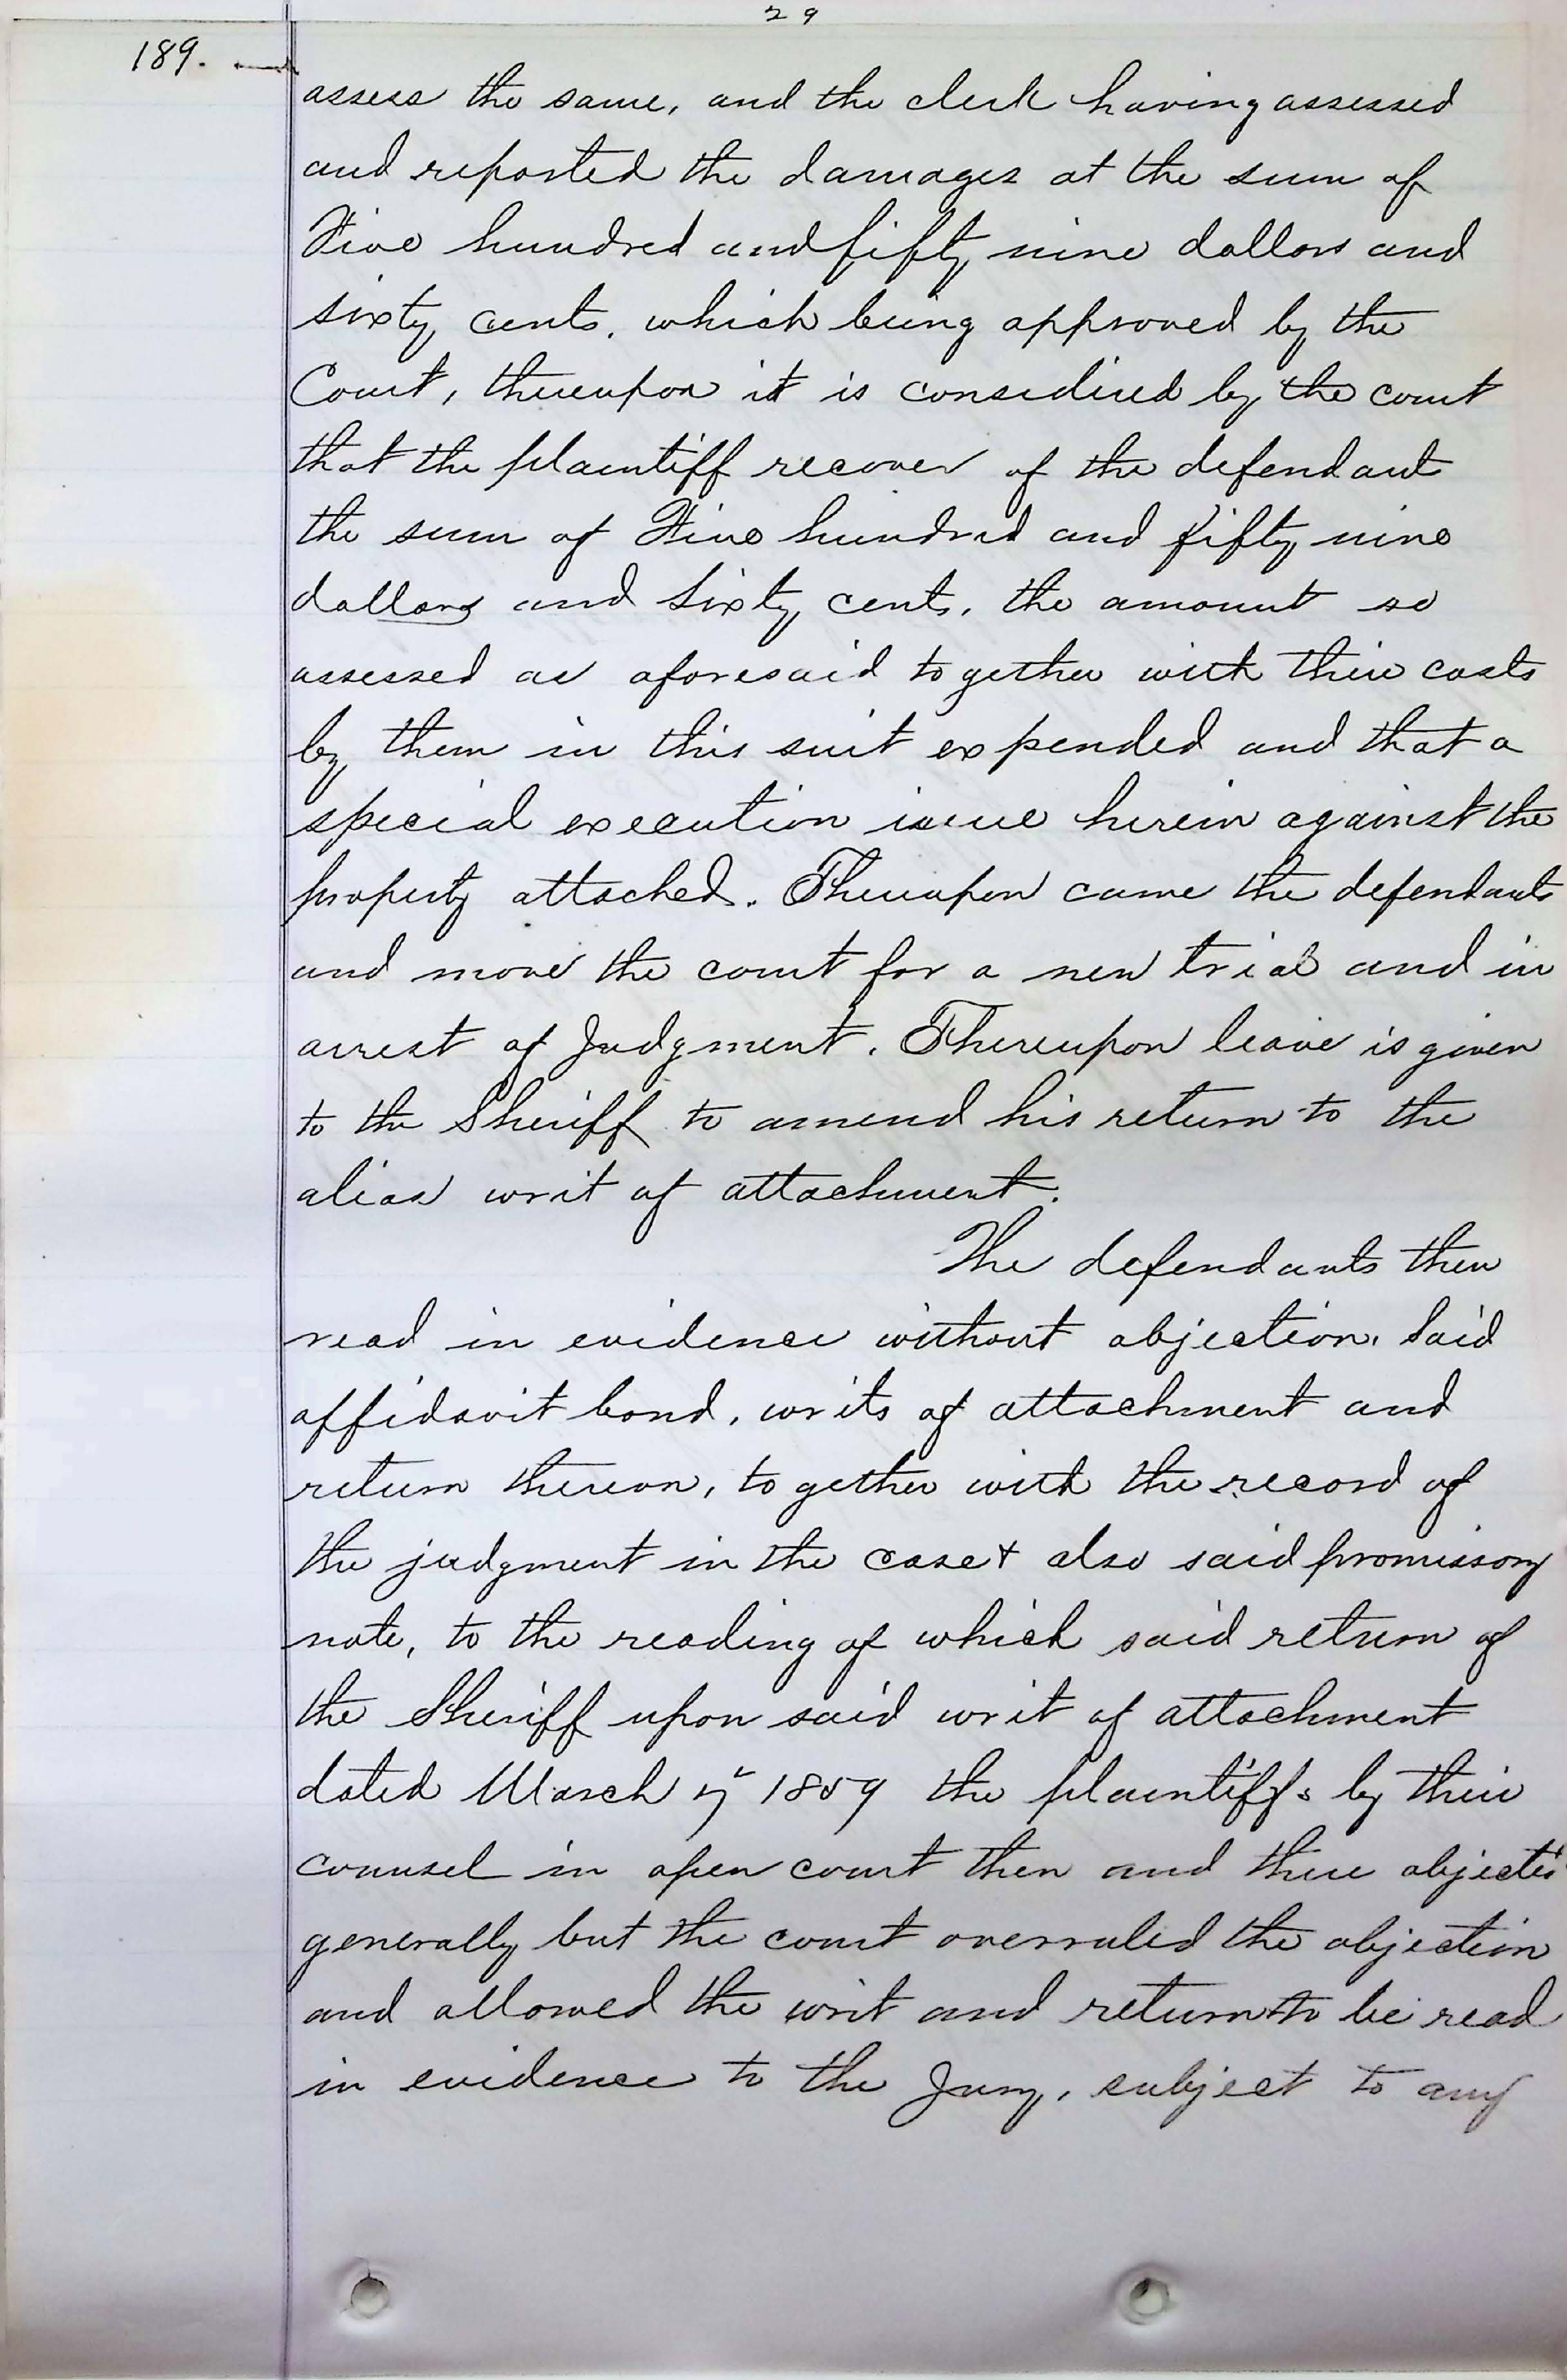 29
189.
assess the same, and the clerk having assessed
and reported the damages at the sum of
Five hundred and fifty nine dollars and
sixty cents, which being approved by the
Court, thereupon it is considered by the court
that the plaintiff recover of the defendant
the sum of Five hundred and fifty nine
dollars and sixty cents, the amount so
assessed as aforesaid together with their costs
by them in this suit expended and that a
special execution issue herein against the
property attached. Thereupon came the defendants
and move the court for a new trial and in
arrest of Judgment. Thereupon leave is given
to the Sheriff to amend his return to the
alias writ of attachment.
The defendants then
read in evidence without objection, said
affidavit bond, writs of attachment and
return thereon, together with the record of
the judgment in the case & also said promissory
note, to the reading of which said return of
the Sheriff upon said writ of attachment
dated March 7" 1859 the plaintiffs by their
counsel in open court then and there objected
generally but the court overruled the objection
and allowed the writ and return to be read
in evidence to the Jury, subject to any